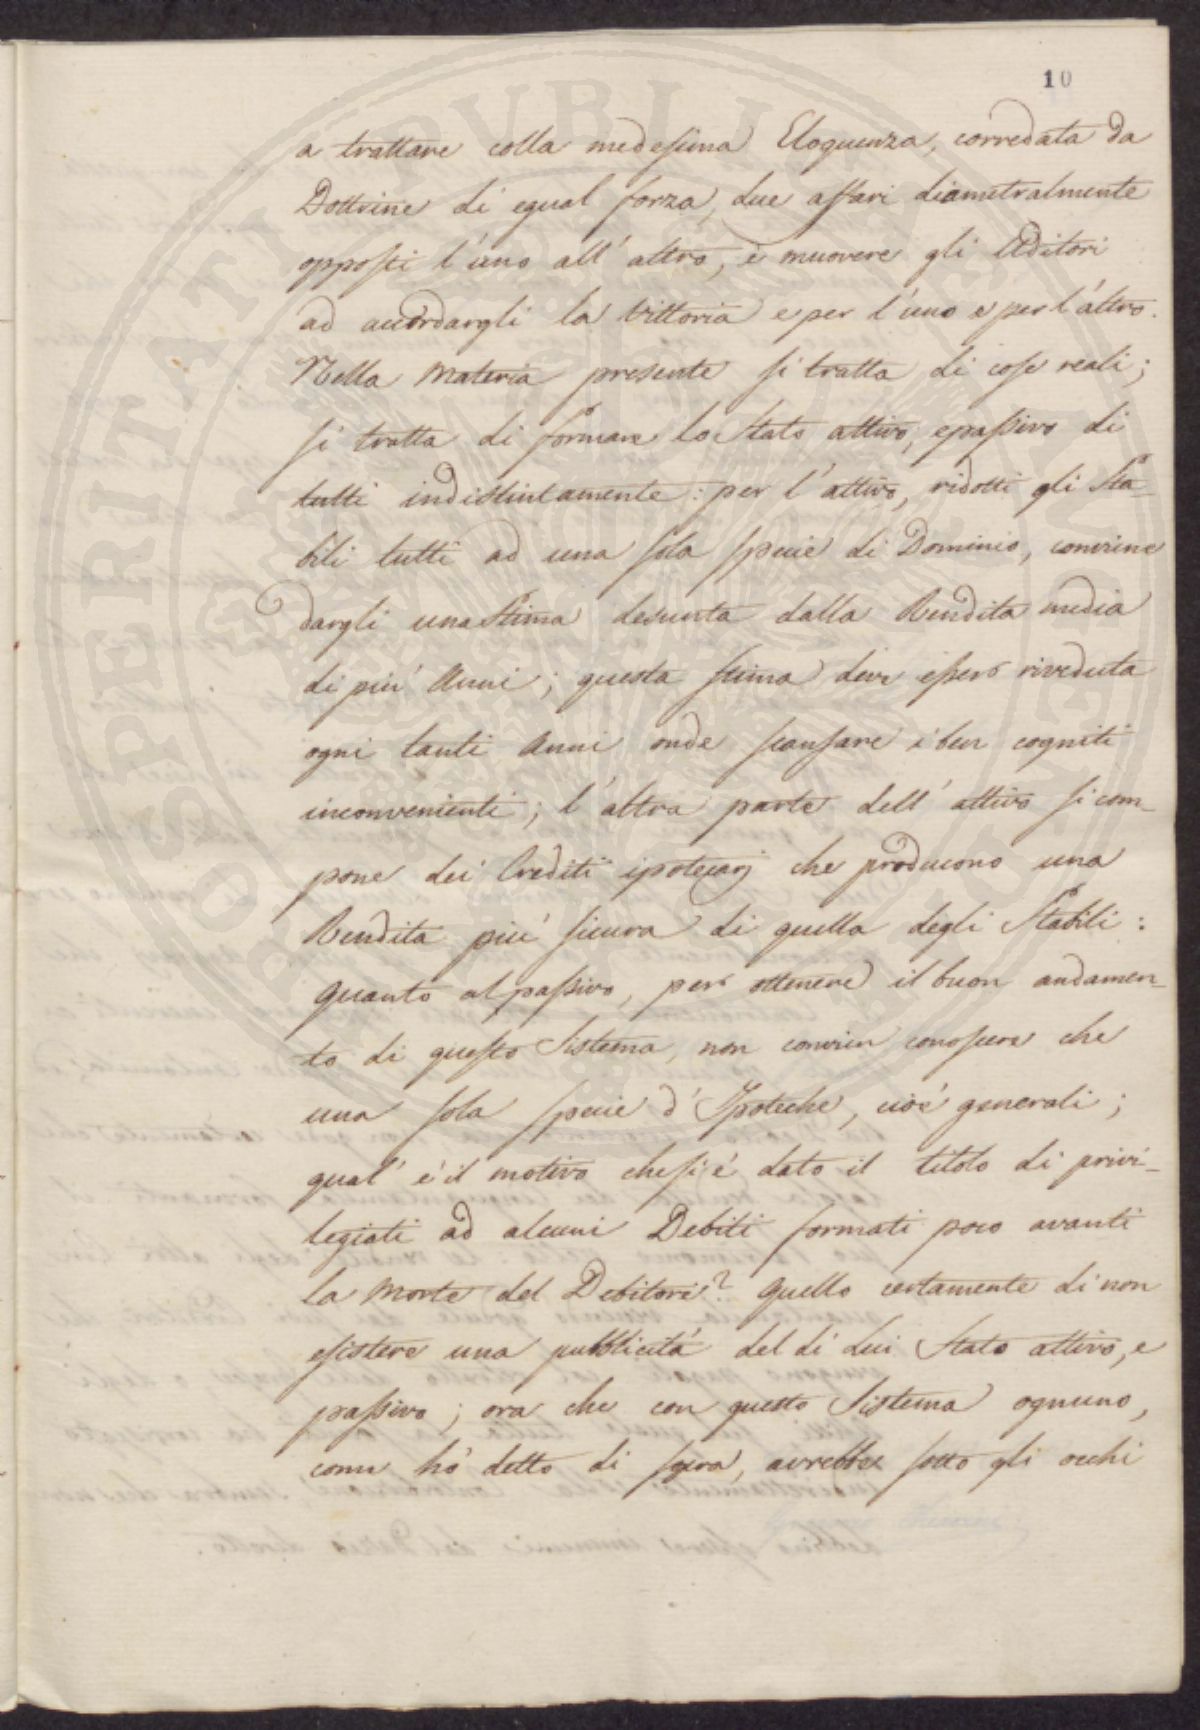 10
a trattare colla medesima Eloquenza, corredata da
Dottrine di egual forza, due affari diametralmente
opposti l'uno all'altro, e muovere gli Uditori
ad accordargli la Vittoria e per l'uno e per l'altro.
Nella Materia presente si tratta di cose reali;
si tratta di formare lo Stato attivo, e passivo di
tutti indistintamente: per l'attivo, ridotti gli Sta-
bili tutti ad una sola specie di Dominio, conviene
dargli una Stima desunta dalla Rendita media
di più Anni; questa stima deve esser riveduta
ogni tanti Anni onde scansare i ben cogniti
inconvenienti; l'altra parte dell'attivo si com-
pone dei Crediti ipotecarj che producono una
Rendita più sicura di quella degli Stabili:
quanto al passivo, per ottenere il buon andamen-
to di questo Sistema, non convien conoscere che
una sola specie d'Ipoteche, cioè generali;
qual'è il motivo che si è dato il titolo di privi-
legiati ad alcuni Debiti formati poco avanti
la Morte del Debitore? Quello certamente di non
esistere una pubblicità del di Lui Stato attivo, e
passivo; ora che con questo Sistema ognuno,
come hò detto di sopra, avrebbe sotto gli occhi
PROSPERITATI PUBLICAE AUGENDAE